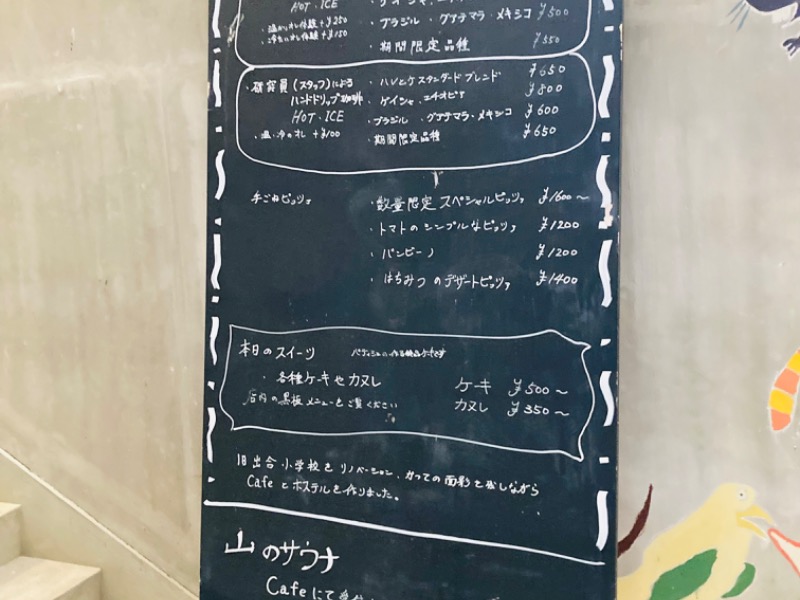 HOT・ICE
・ブラジル・グアテマラ・メキシコ ¥500
・温かいオレ体験 +¥250
・冷たいオレ体験 +¥150
・期間限定品種 ¥550
・研究員(スタッフ)による ・ハレとケスタンダードブレンド ¥650
ハンドドリップ珈琲 ・ゲイシャ、エチオピア ¥800
HOT・ICE ・ブラジル・グアテマラ・メキシコ ¥600
・温・冷のオレ +¥100 ・期間限定品種 ¥650
手ごねピッツァ ・数量限定スペシャルピッツァ ¥1600〜
・トマトのシンプルなピッツァ ¥1200
・バンビーノ ¥1200
・はちみつのデザートピッツァ ¥1400
本日のスイーツ パティシエの作る絶品ケーキです
・各種ケーキやカヌレ ケーキ ¥500〜
店内の黒板メニューをご覧ください カヌレ ¥350〜
旧出合小学校をリノベーション、かつての面影を残しながら
Cafeとホステルを作りました。
山のサウナ
Cafeにて